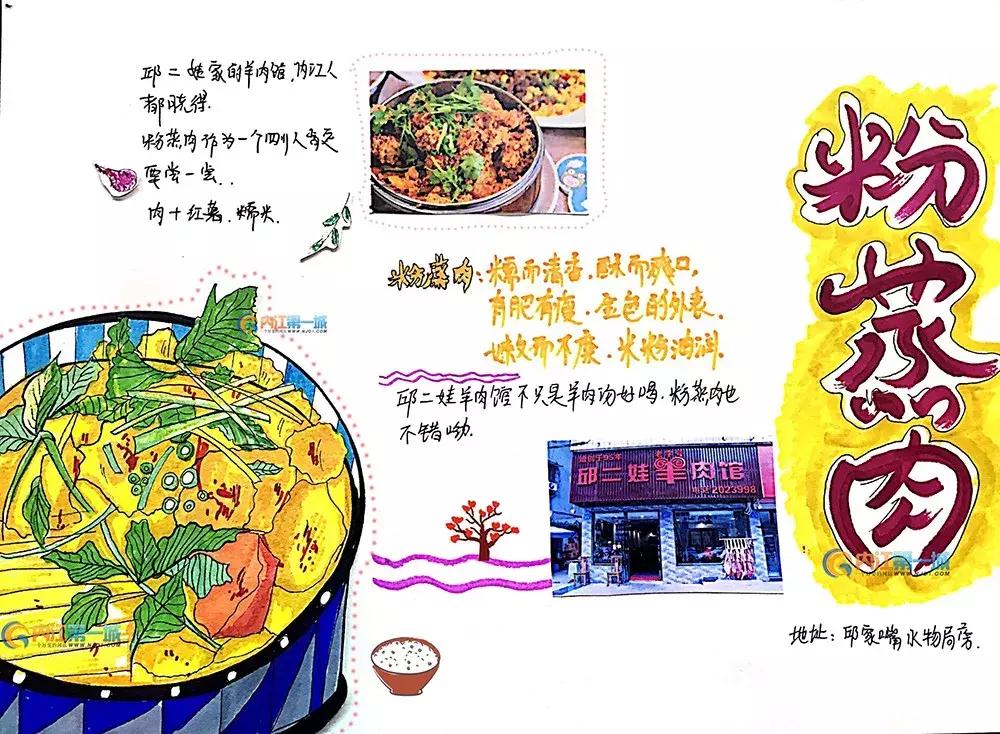 邱二娃家的羊肉馆，内江人
都晓得.
粉蒸肉作为一个四川人肯定
要尝一尝..
肉+红薯. 糯米.
粉蒸肉
粉蒸肉：糯而清香，酥而爽口，
有肥有瘦. 金色的外表.
嫩而不糜. 米粉油润.
邱二娃羊肉馆不只是羊肉汤好喝. 粉蒸肉也
不错呦.
始创于95年 老字号
邱二娃羊肉馆
电话 2023998
地址：邱家嘴水物局旁.
内江第一城
WWW.NJDY.COM
内江第一城
内江第一城